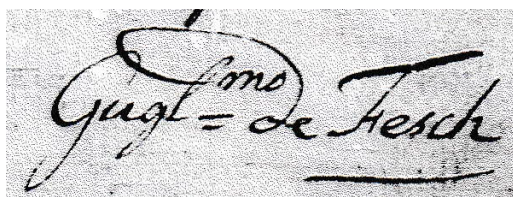 Gugl=mo de Fesch